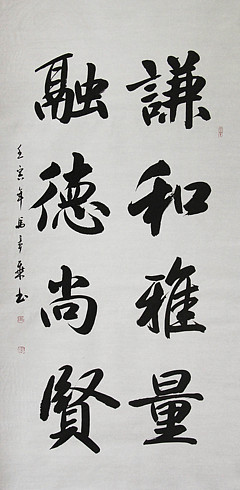 謙和雅量
融德尚賢
壬寅年馬年乘书